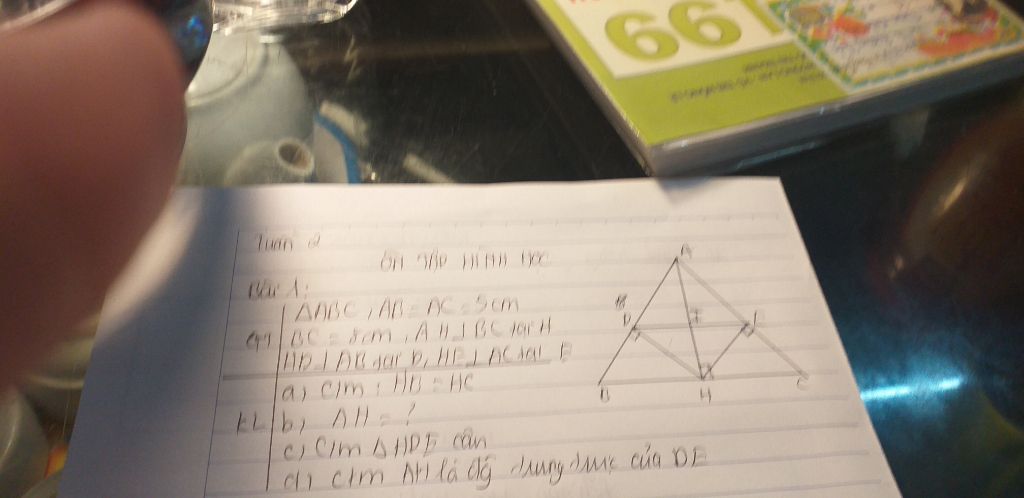 661
Tuần 2
ÔN TẬP HÌNH HỌC
Bài 1:
ΔABC, AB = AC = 5cm
GT BC = 8cm, AH ⊥ BC tại H
HD ⊥ AB tại D, HE ⊥ AC tại E
a) C/m: HB = HC
KL b) AH = ?
c) C/m Δ HDE cân
d) C/m AH là đg trung trực của DE
A
D I E
B H C